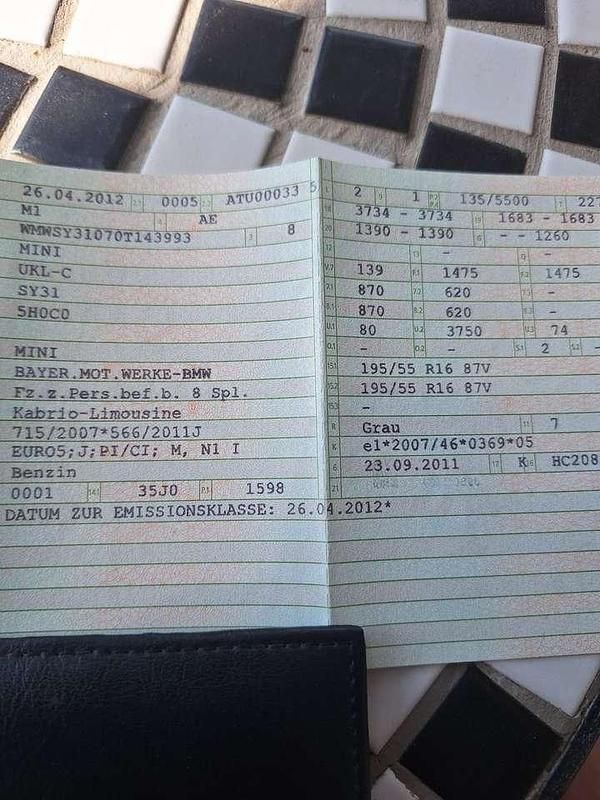 26.04.2012 0005 ATU00033 5
M1 AE
WMWSY31070T143993 8
MINI
UKL-C
SY31
5H0C0
MINI
BAYER.MOT.WERKE-BMW
Fz.z.Pers.bef.b. 8 Spl.
Kabrio-Limousine
715/2007*566/2011J
EURO5;J;PI/CI; M, N1 I
Benzin
0001 35J0 1598
DATUM ZUR EMISSIONSKLASSE: 26.04.2012*
2 1 135/5500 227
3734 - 3734 1683 - 1683
1390 - 1390 - - 1260
- -
139 1475 1475
870 620 -
870 620 -
80 3750 74
- - 2 -
195/55 R16 87V
195/55 R16 87V
-
Grau 7
e1*2007/46*0369*05
23.09.2011 K HC208